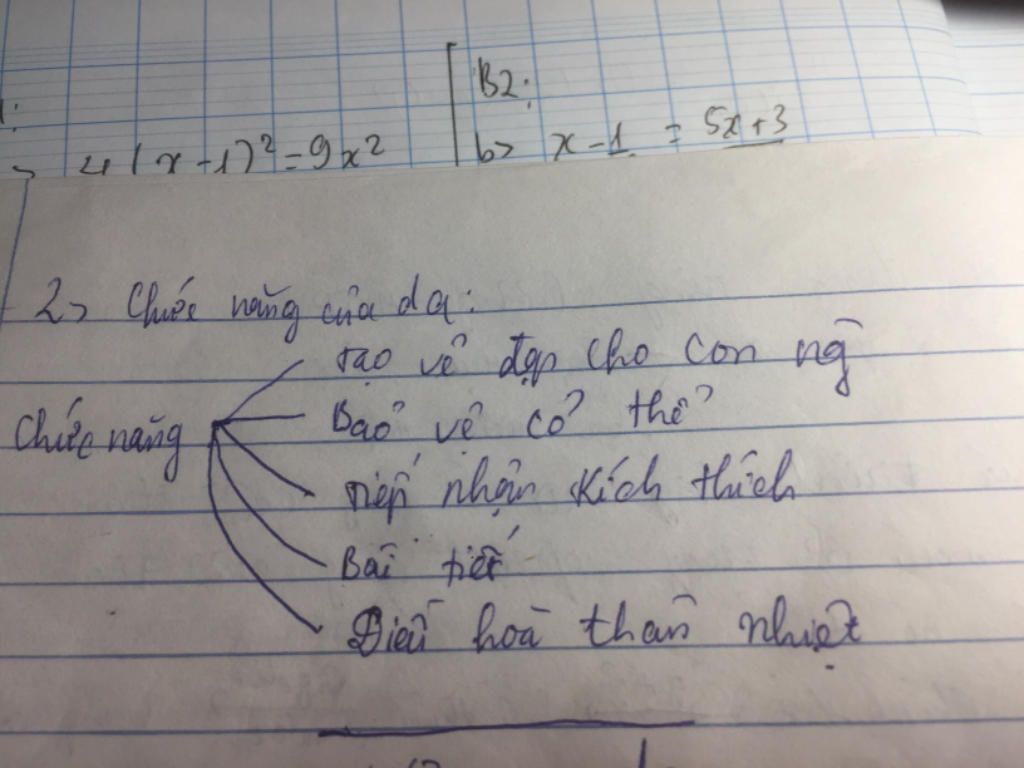 4(x-1)²=9x²
B2:
b> x-1 = 5x+3
2> Chức năng của da:
Tạo vẻ đẹp cho con ng
Chức năng
Bảo vệ cơ thể
Tiếp nhận kích thích
Bài tiết
Điều hoà thân nhiệt